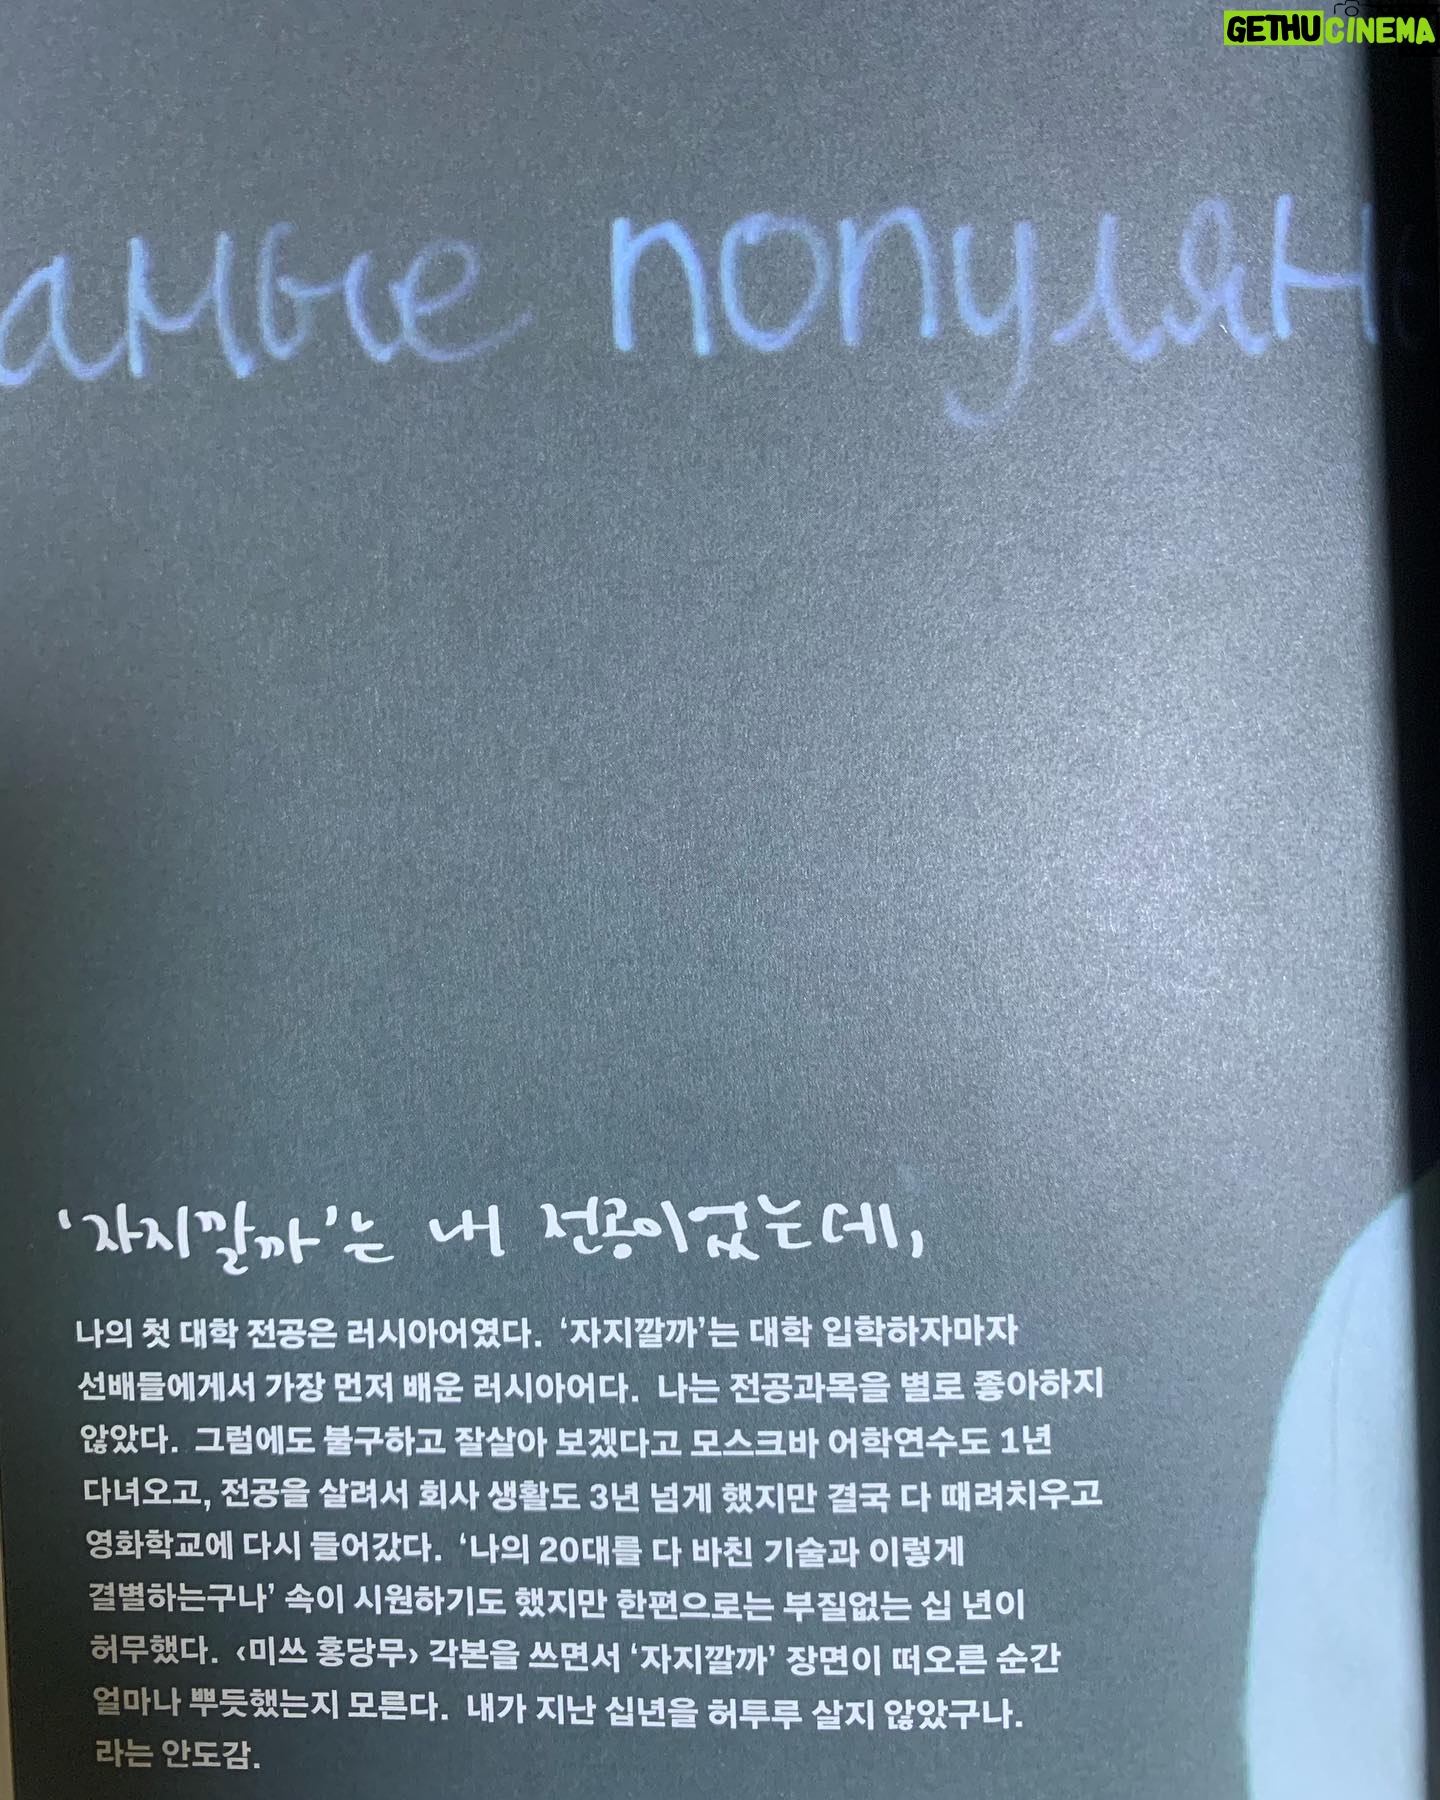 GETHUCINEMA
амые популяр
‘자지깔까’는 내 전공이었는데,
나의 첫 대학 전공은 러시아어였다. ‘자지깔까’는 대학 입학하자마자
선배들에게서 가장 먼저 배운 러시아어다. 나는 전공과목을 별로 좋아하지
않았다. 그럼에도 불구하고 잘살아 보겠다고 모스크바 어학연수도 1년
다녀오고, 전공을 살려서 회사 생활도 3년 넘게 했지만 결국 다 때려치우고
영화학교에 다시 들어갔다. ‘나의 20대를 다 바친 기술과 이렇게
결별하는구나’ 속이 시원하기도 했지만 한편으로는 부질없는 십 년이
허무했다. ‹미쓰 홍당무› 각본을 쓰면서 ‘자지깔까’ 장면이 떠오른 순간
얼마나 뿌듯했는지 모른다. 내가 지난 십년을 허투루 살지 않았구나.
라는 안도감.